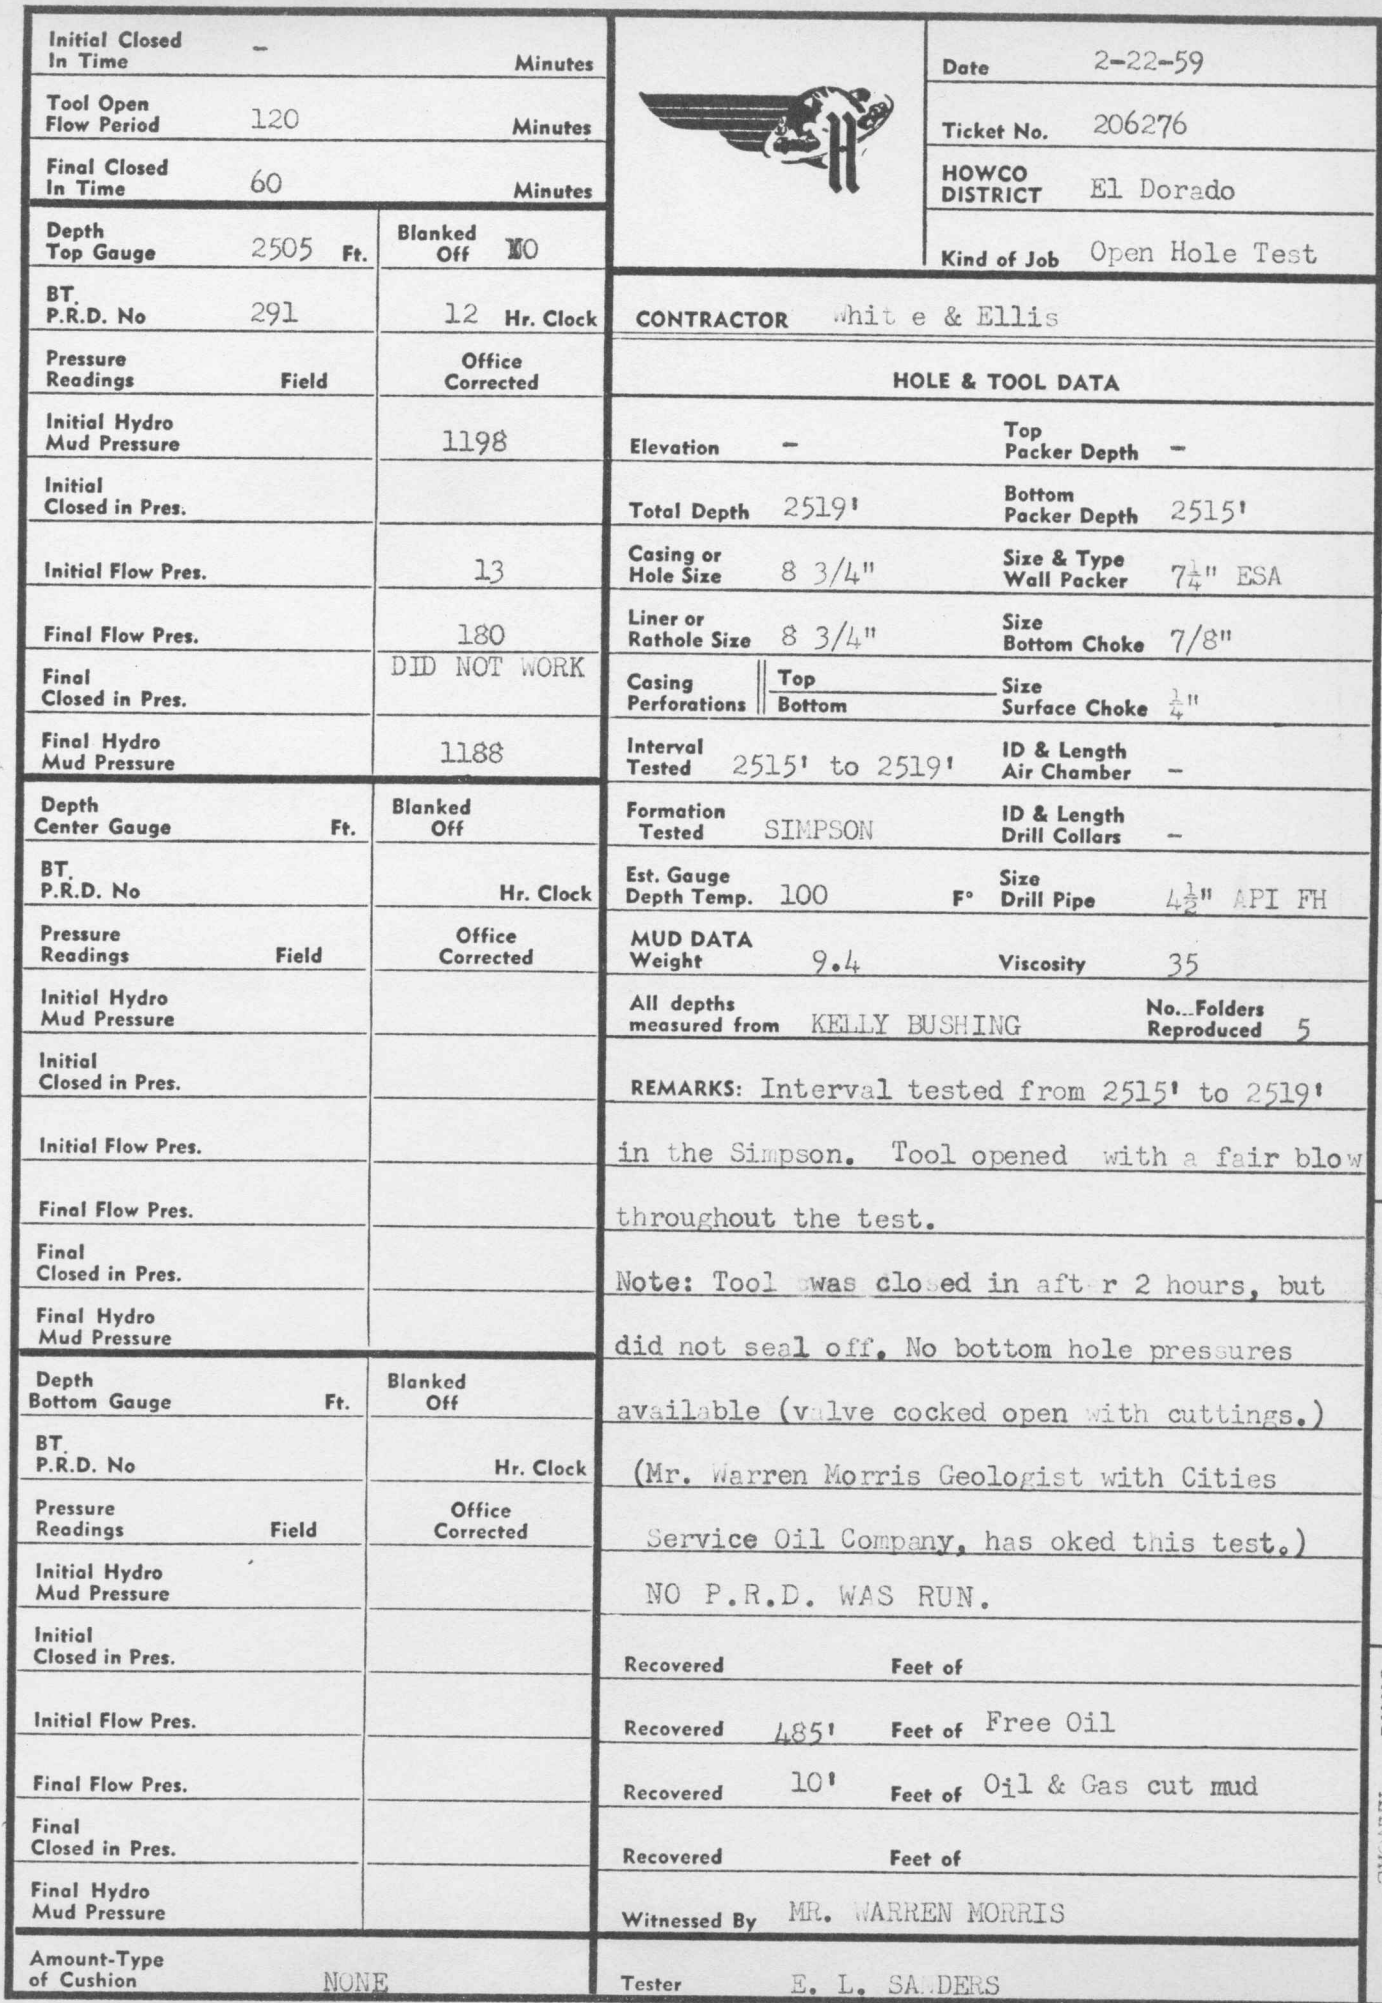 Initial Closed
In Time - Minutes
Tool Open
Flow Period 120 Minutes
Final Closed
In Time 60 Minutes
Depth
Top Gauge 2505 Ft. Blanked
Off NO
BT.
P.R.D. No 291 12 Hr. Clock
Pressure
Readings Field Office
Corrected
Initial Hydro
Mud Pressure 1198
Initial
Closed in Pres.
Initial Flow Pres. 13
Final Flow Pres. 180
DID NOT WORK
Final
Closed in Pres.
Final Hydro
Mud Pressure 1188
Depth
Center Gauge Ft. Blanked
Off
BT.
P.R.D. No Hr. Clock
Pressure
Readings Field Office
Corrected
Initial Hydro
Mud Pressure
Initial
Closed in Pres.
Initial Flow Pres.
Final Flow Pres.
Final
Closed in Pres.
Final Hydro
Mud Pressure
Depth
Bottom Gauge Ft. Blanked
Off
BT.
P.R.D. No Hr. Clock
Pressure
Readings Field Office
Corrected
Initial Hydro
Mud Pressure
Initial
Closed in Pres.
Initial Flow Pres.
Final Flow Pres.
Final
Closed in Pres.
Final Hydro
Mud Pressure
Amount-Type
of Cushion NONE
H
Date 2-22-59
Ticket No. 206276
HOWCO
DISTRICT El Dorado
Kind of Job Open Hole Test
CONTRACTOR Whit e & Ellis
HOLE & TOOL DATA
Elevation - Top
Packer Depth -
Total Depth 2519' Bottom
Packer Depth 2515'
Casing or
Hole Size 8 3/4" Size & Type
Wall Packer 7¼" ESA
Liner or
Rathole Size 8 3/4" Size
Bottom Choke 7/8"
Casing
Perforations Top
Bottom Size
Surface Choke ¼"
Interval
Tested 2515' to 2519' ID & Length
Air Chamber -
Formation
Tested SIMPSON ID & Length
Drill Collars -
Est. Gauge
Depth Temp. 100 F° Size
Drill Pipe 4½" API FH
MUD DATA
Weight 9.4 Viscosity 35
All depths
measured from KELLY BUSHING No...Folders
Reproduced 5
REMARKS: Interval tested from 2515' to 2519'
in the Simpson. Tool opened with a fair blow
throughout the test.
Note: Tool was closed in after 2 hours, but
did not seal off. No bottom hole pressures
available (valve cocked open with cuttings.)
(Mr. Warren Morris Geologist with Cities
Service Oil Company, has oked this test.)
NO P.R.D. WAS RUN.
Recovered Feet of
Recovered 485' Feet of Free Oil
Recovered 10' Feet of Oil & Gas cut mud
Recovered Feet of
Witnessed By MR. WARREN MORRIS
Tester E. L. SANDERS